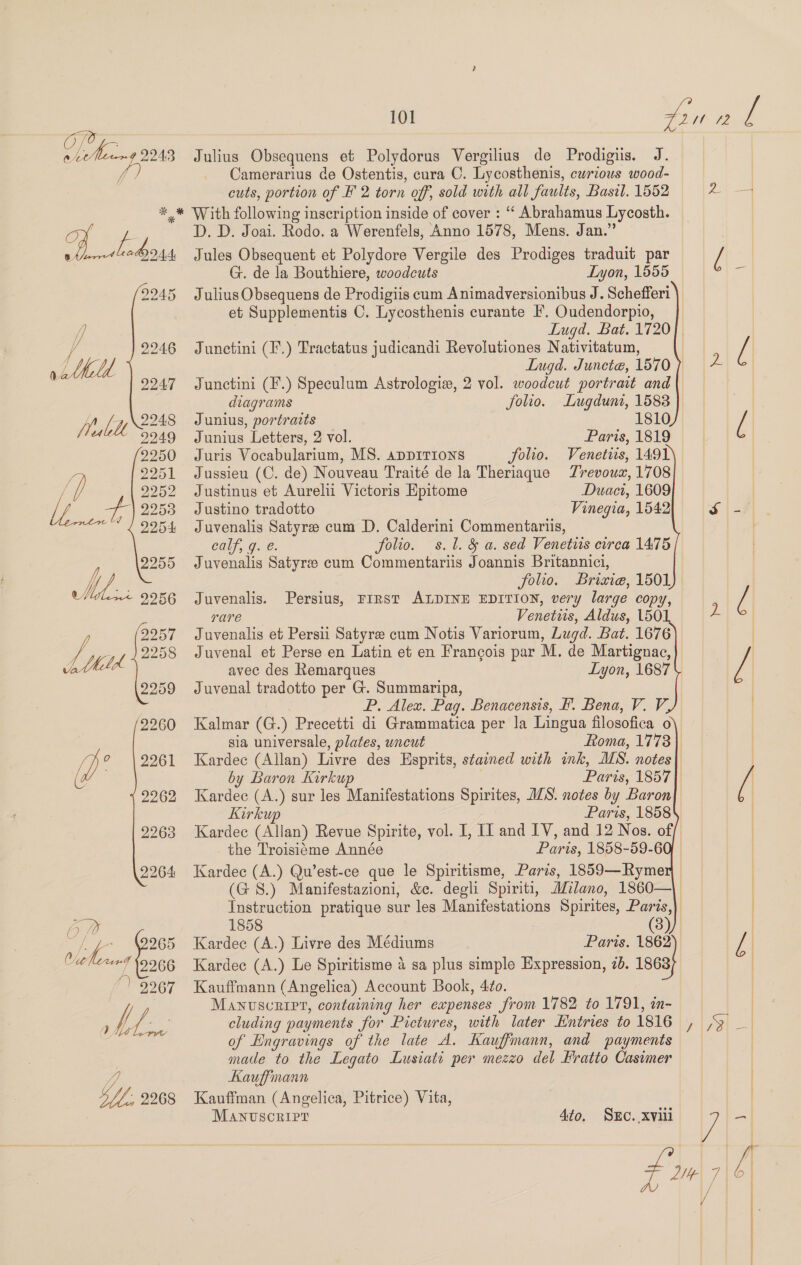 101
2243 Julius Obsequens et Polydorus Vergilius de Prodigiis. J.
Camerarius de Ostentis, cura C. Lycosthenis, curious wood-
cuts, portion of F 2 torn off, sold with all faults, Basil. 1552
*** With following inscription inside of cover : “ Abrahamus Lycosth.
D. D. Joai. Rodo. a Werenfels, Anno 1578, Mens. Jan.”
2244 Jules Obsequent et Polydore Vergile des Prodiges traduit par
G. de la Bouthiere, woodcuts Lyon, 1555
2245 Julius Obsequens de Prodigiis cum Animadversionibus J. Schefferi
et Supplementis C. Lycosthenis curante F. Oudendorpio,
Lugd. Bat. 1720
2246 Junctini (F.) Tractatus judicandi Revolutiones Nativitatum,
Lugd. Junctæ, 1570
2247 Junctini (F.) Speculum Astrologiæ, 2 vol. woodcut portrait and
diagrams folio. Lugduni, 1583
2248 Junius, portraits 1810
2249 Junius Letters, 2 vol. Paris, 1819
2250 Juris Vocabularium, MS. ADDITIONS folio. Venetiis, 1491
2251 Jussieu (C. de) Nouveau Traité de la Theriaque Trevoux, 1708
2252 Justinus et Aurelii Victoris Epitome Duaci, 1609
2253 Justino tradotto Vinegia, 1542
2254 Juvenalis Satyræ cum D. Calderini Commentariis,
calf, g. e. folio. s. l. & a. sed Venetiis circa 1475
2255 Juvenalis Satyræ cum Commentariis Joannis Britannici,
folio. Brixiæ, 1501
2256 Juvenalis. Persius, FIRST ALDINE EDITION, very large copy,
rare Venetiis, Aldus, 1501
2257 Juvenalis et Persii Satyræ cum Notis Variorum, Lugd. Bat. 1676
2258 Juvenal et Perse en Latin et en François par M. de Martignac,
avec des Remarques Lyon, 1687
2259 Juvenal tradotto per G. Summaripa,
P. Alex. Pag. Benacensis, F. Bena, V. V.
2260 Kalmar (G.) Precetti di Grammatica per la Lingua filosofica o
sia universale, plates, uncut Roma, 1773
2261 Kardec (Allan) Livre des Esprits, stained with ink, MS. notes
by Baron Kirkup Paris, 1857
2262 Kardec (A.) sur les Manifestations Spirites, MS. notes by Baron
Kirkup Paris, 1858
2263 Kardec (Allan) Revue Spirite, vol. I, II and IV, and 12 Nos. of
the Troisième Année Paris, 1858-59-60
2264 Kardec (A.) Qu’est-ce que le Spiritisme, Paris, 1859—Rymer
(G S.) Manifestazioni, &c. degli Spiriti, Milano, 1860—
Instruction pratique sur les Manifestations Spirites, Paris,
1858 (3)
2265 Kardec (A.) Livre des Médiums Paris. 1862
2266 Kardec (A.) Le Spiritisme à sa plus simple Expression, ib. 1863
2267 Kauffmann (Angelica) Account Book, 4to.
MANUSCRIPT, containing her expenses from 1782 to 1791, in-
cluding payments for Pictures, with later Entries to 1816
of Engravings of the late A. Kauffmann, and payments
made to the Legato Lusiati per mezzo del Fratto Casimer
Kauffmann
2268 Kauffman (Angelica, Pitrice) Vita,
MANUSCRIPT 4to. SEC. xviii